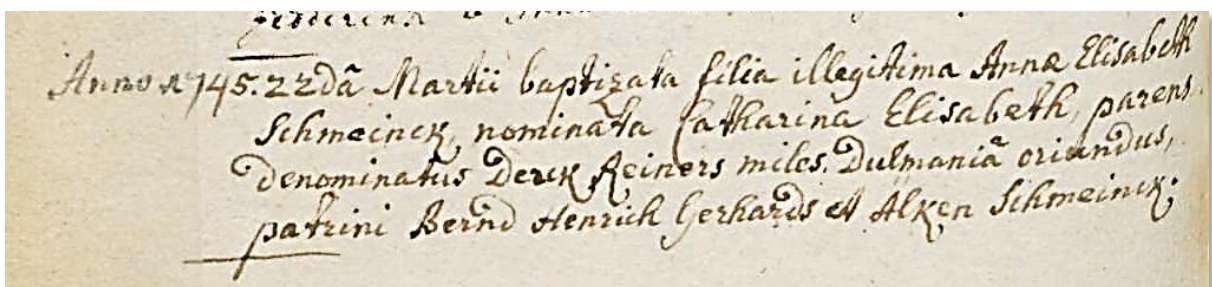 Anno 1745. 22dã Martii baptizata filia illegitima Annæ Elisabeth
Schmeinck, nominata Catharina Elisabeth, parens
denominatus Derck Reiners miles. Dulmaniâ oriundus,
patrini Bernd Henrich Gerhards et Alken Schmeinck;